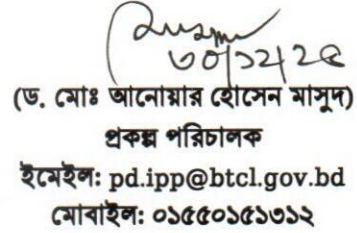 ৩০/১২/২৫
(ড. মোঃ আনোয়ার হোসেন মাসুদ)
প্রকল্প পরিচালক
ইমেইল: pd.ipp@btcl.gov.bd
মোবাইল: ০১৫৫০১৫১৩১২